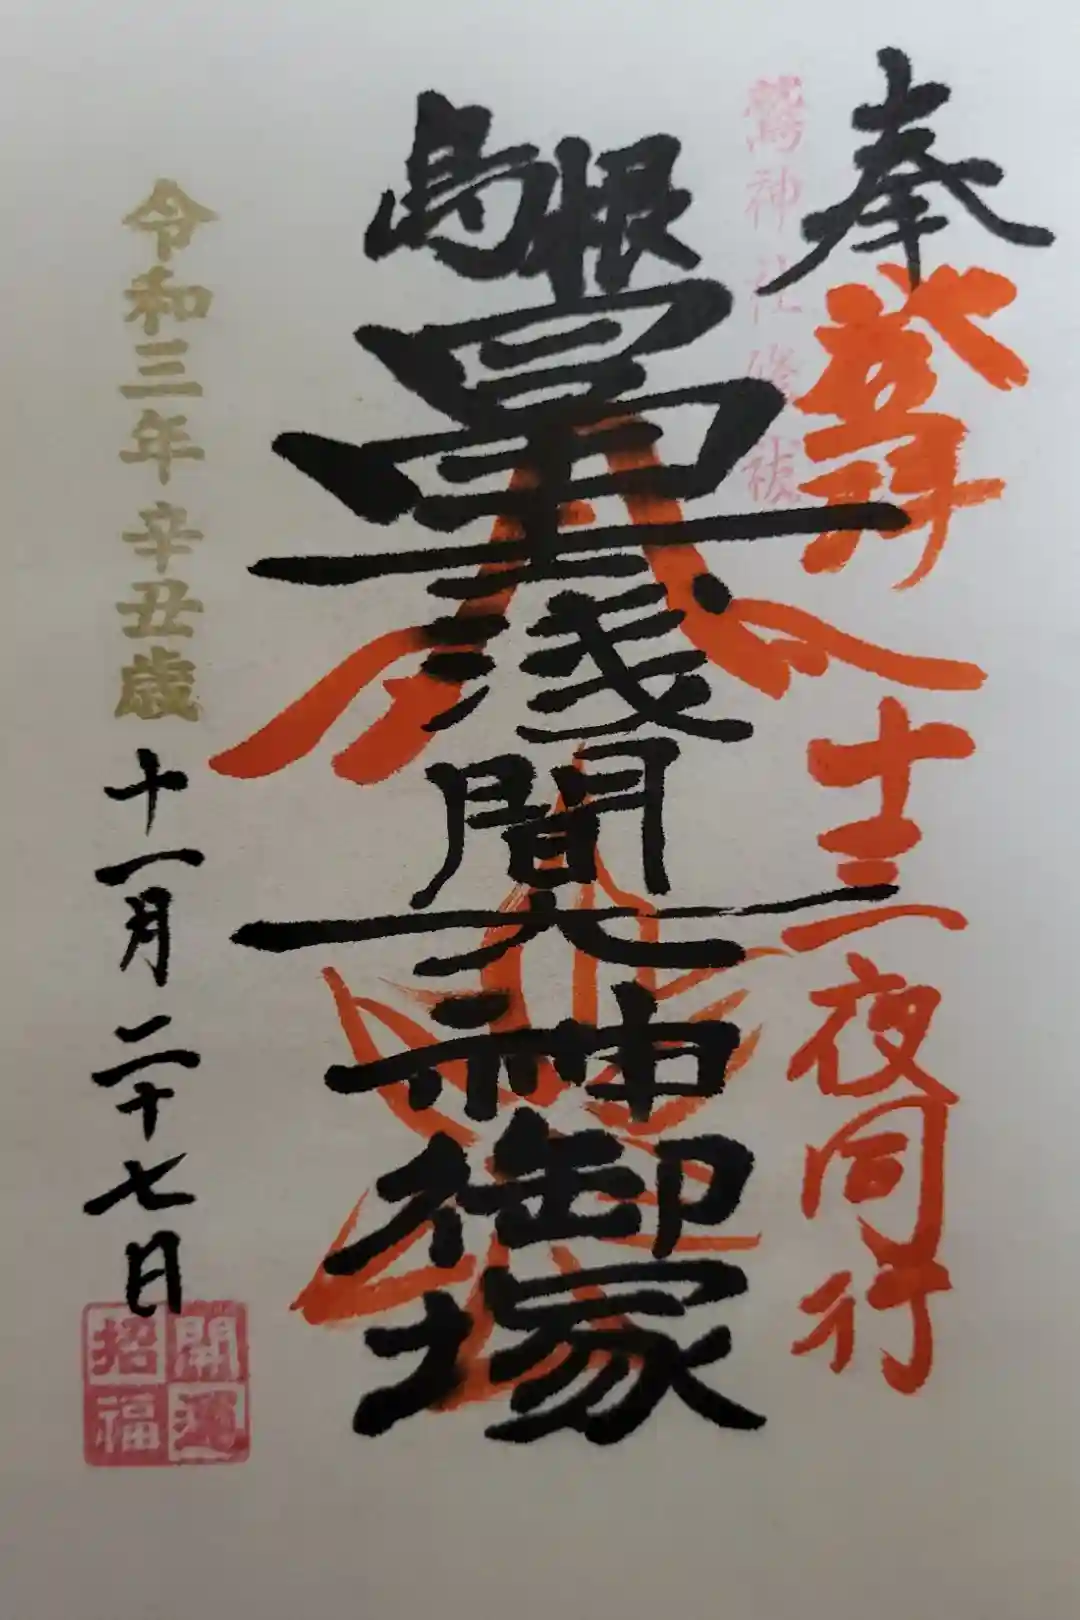 奉
登拝
十三夜同行
鷲神社修祓
島根
冨士浅間大神御塚
令和三年辛丑歳十一月二十七日
開運
招福